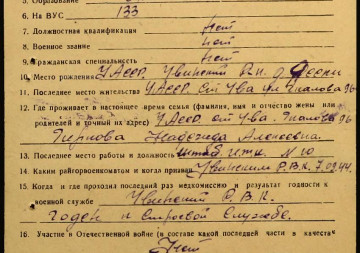 5. Образование
6. На ВУС 133
7. Должностная квалификация Нет
8. Военное звание нет
9. Гражданская специальность Нет
10. Место рождения УАССР. Увинский Р-н. д.
11. Последнее место жительства УАССР. ст Ува ул
12. Где проживает в настоящее время семья (фамилия, имя и отчество жены или
родителей и точный их адрес) УАССР. ст. Ува.
Надежда Алексеевна
13. Последнее место работы и должность
14. Каким райгорвоенкоматом и когда призван Увинским Р.В.К. 7.02.44.
15. Когда и где проходил последний раз медкомиссию и результат годности к
военной службе Увинский Р.В.К.
Годен к строевой службе.
16. Участие в Отечественной войне (в составе какой последней части в качестве
Нет